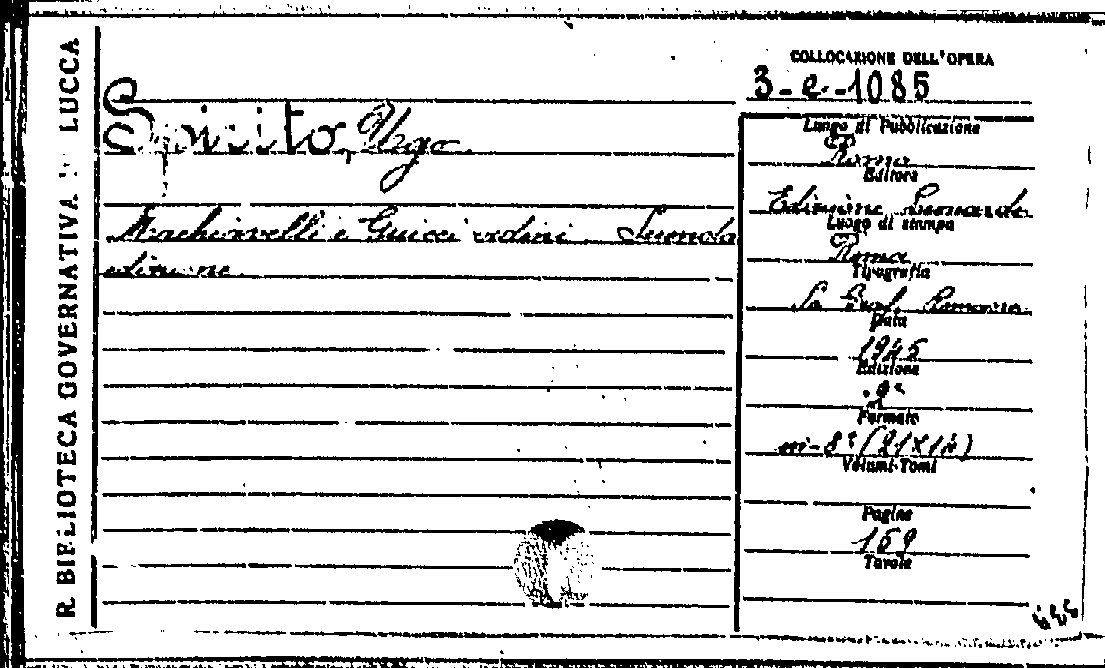 R. BIBLIOTECA GOVERNATIVA LUCCA
COLLOCAZIONE DELL'OPERA
3-e-1085
Spirito, Ugo
Machiavelli e Guicciardini. Seconda
edizione.
Luogo di Pubblicazione
Roma
Editore
Edizione Romande
Luogo di stampa
Roma
Tipografia
Romana
Data
1945
Edizione
2ª
Formato
in-8° (21X14)
Volumi-Tomi
Pagine
169
Tavole